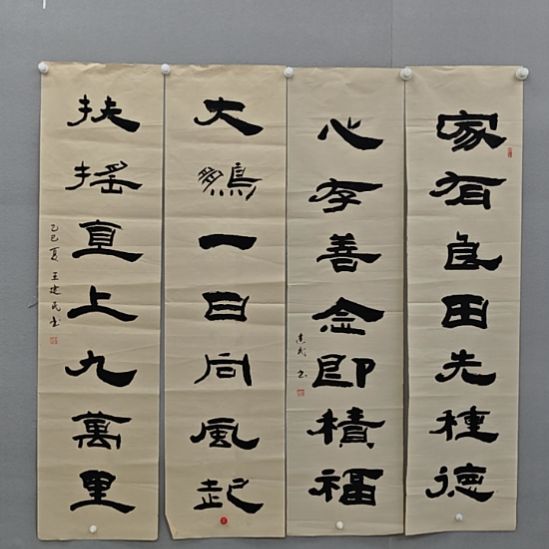 家有良田先種德
心存善念即積福
建民书
大鵬一日同風起
扶搖直上九萬里
乙巳夏王建民书